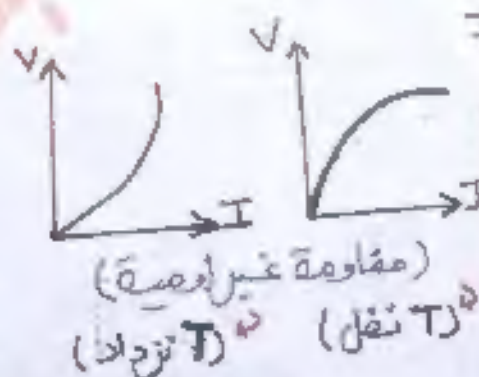 V V
I I
(مقاومة غير اومية)
(T تزداد) (T تقل)